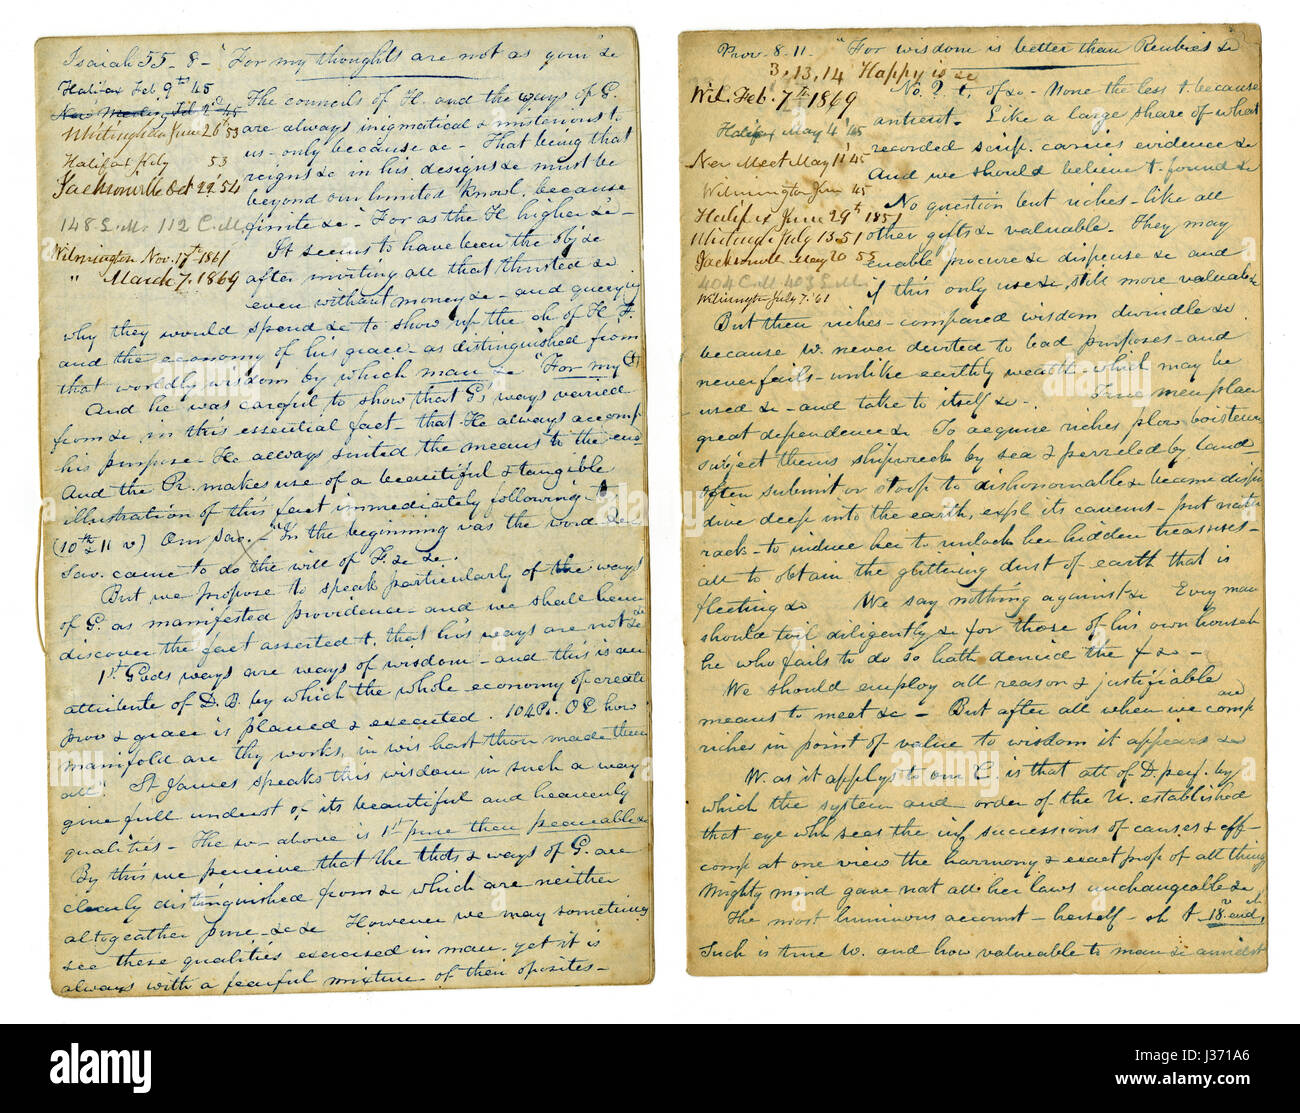 Isaiah 55 - 8 - "For my thoughts are not as your &c
Halifax Feb 9th 45
New Meeting Feb 2d 45
Whitingham June 26th 53
Halifax July 53
Jacksonville Oct 29. 54
148 L.M. 112 C.M.
Wilmington Nov. 17th 1861
" March 7. 1869
The councils of H. and the ways of G.
are always inigmatical & misterious to
us - only because &c - That being that
reigns &c in his designs &c must be
beyond our limited knowl. because
finite &c - For as the H higher &c -
It seems to have been the obj &c
after inviting all that thirsted &c
even without money &c - and querying
why they would spend &c to show up the ch of H. F.
and the economy of his grace - as distinguished from
that worldly wisdom by which man &c "For my
And he was careful to show that G's ways varied
from &c in this essential fact - that He always accomp
his purpose - He always suited the means to the end
And the Pr. makes use of a beautiful & tangible
illustration of this fact immediately following
(10th & 11 v) Our Sav. - "In the beginning was the word &c
Sav. came to do the will of F. &c &c.
But we propose to speak particularly of the ways
of G. as manifested providence - and we shall
discover the fact asserted t. that his ways are not &c
1st Gods ways are ways of wisdom - and this is an
attribute of D. B. by which the whole economy of create
prov & grace is planed & executed. 104 Ps. O L how
manifold are thy works, in wis hast thou made them
all" St James speaks this wisdom in such a way
give full underst of its beautiful and heavenly
qualities - The w - above is 1st pure then peaceable &c
By this we perceive that the thots & ways of G. are
clearly distinguished from &c which are neither
altogeather pure - &c &c However we may sometimes
see these qualities exercised in man, yet it is
always with a fearful mixture of their opposites -
Prov - 8 - 11. "For wisdom is better than Reubies &c
3, 13, 14 Happy is &c
Wil. Feb. 7th 1869
Halifax May 4 '45
New Meet May 11 '45
Wilmington Jun 45
Halifax June 29th 1851
Whitnd July 13. 51
Jacksonville May 20 55
404 C.M 403 L.M.
Wilmington July 7. '61
No ? t. of &c - None the less t. because
antient. Like a large share of what
recorded scrip. carries evidence &c
And we should believe t - found &c
No question but riches - like all
other gifts &c valuable. They may
enable procure &c dispense &c and
if this only use &c, still more valuable &c
But then riches - compared wisdom dwindle &c
because w. never devoted to bad purposes - and
never fails - unlike earthly wealth - which may be
used &c - and take to itself &c - True men place
great dependence &c To acquire riches plow boisterous
subject thems shipwreck by sea & perreled by land -
Often submit or stoop to dishonorable &c became
dive deep into the earth, expl its caverns - put
rack - to induce her to unlock her hidden treasures -
all to obtain the glittering dust of earth that is
fleeting &c We say nothing against &c Every man
should toil diligently &c for those of his own househ
he who fails to do so hath denied the f &c -
We should employ all reason & justifiable
means to meet &c - But after all when we comp
riches in point of value to wisdom it appears &c
W. as it applys to our C. is that att of D. perf. by
which the system and order of the U. established
that eye who sees the inf successions of causes & eff -
comp at one view the harmony & exact prop of all things
Mighty mind gave nat all her laws unchangeable &c
The most luminous account - herself - ch t 18. v and
Such is true W. and how valuable to man &c amidst
alamy
Image ID: J371A6
www.alamy.com